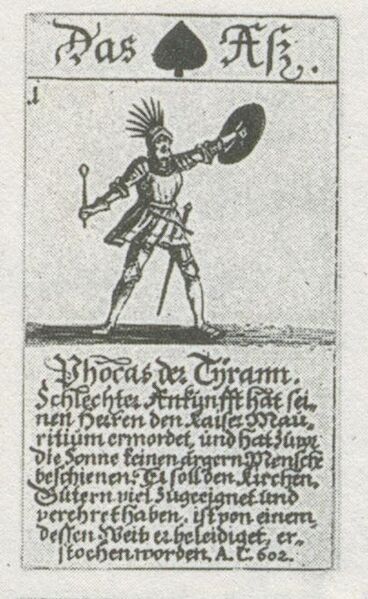 Das Asz..
1
Phocas der Tÿrann.
Schlechter Ankunfft hat sei-
nen Herren den Kaiser Mau-
ritium ermordet, und hat zuvor
die Sonne keinen ärgern Mensche
beschienen. Er soll den Kirchen,
Gütern viel zugeeignet und
verehret haben, ist von einem
dessen Weib er beleidiget, er-
stochen worden. A. C. 602.